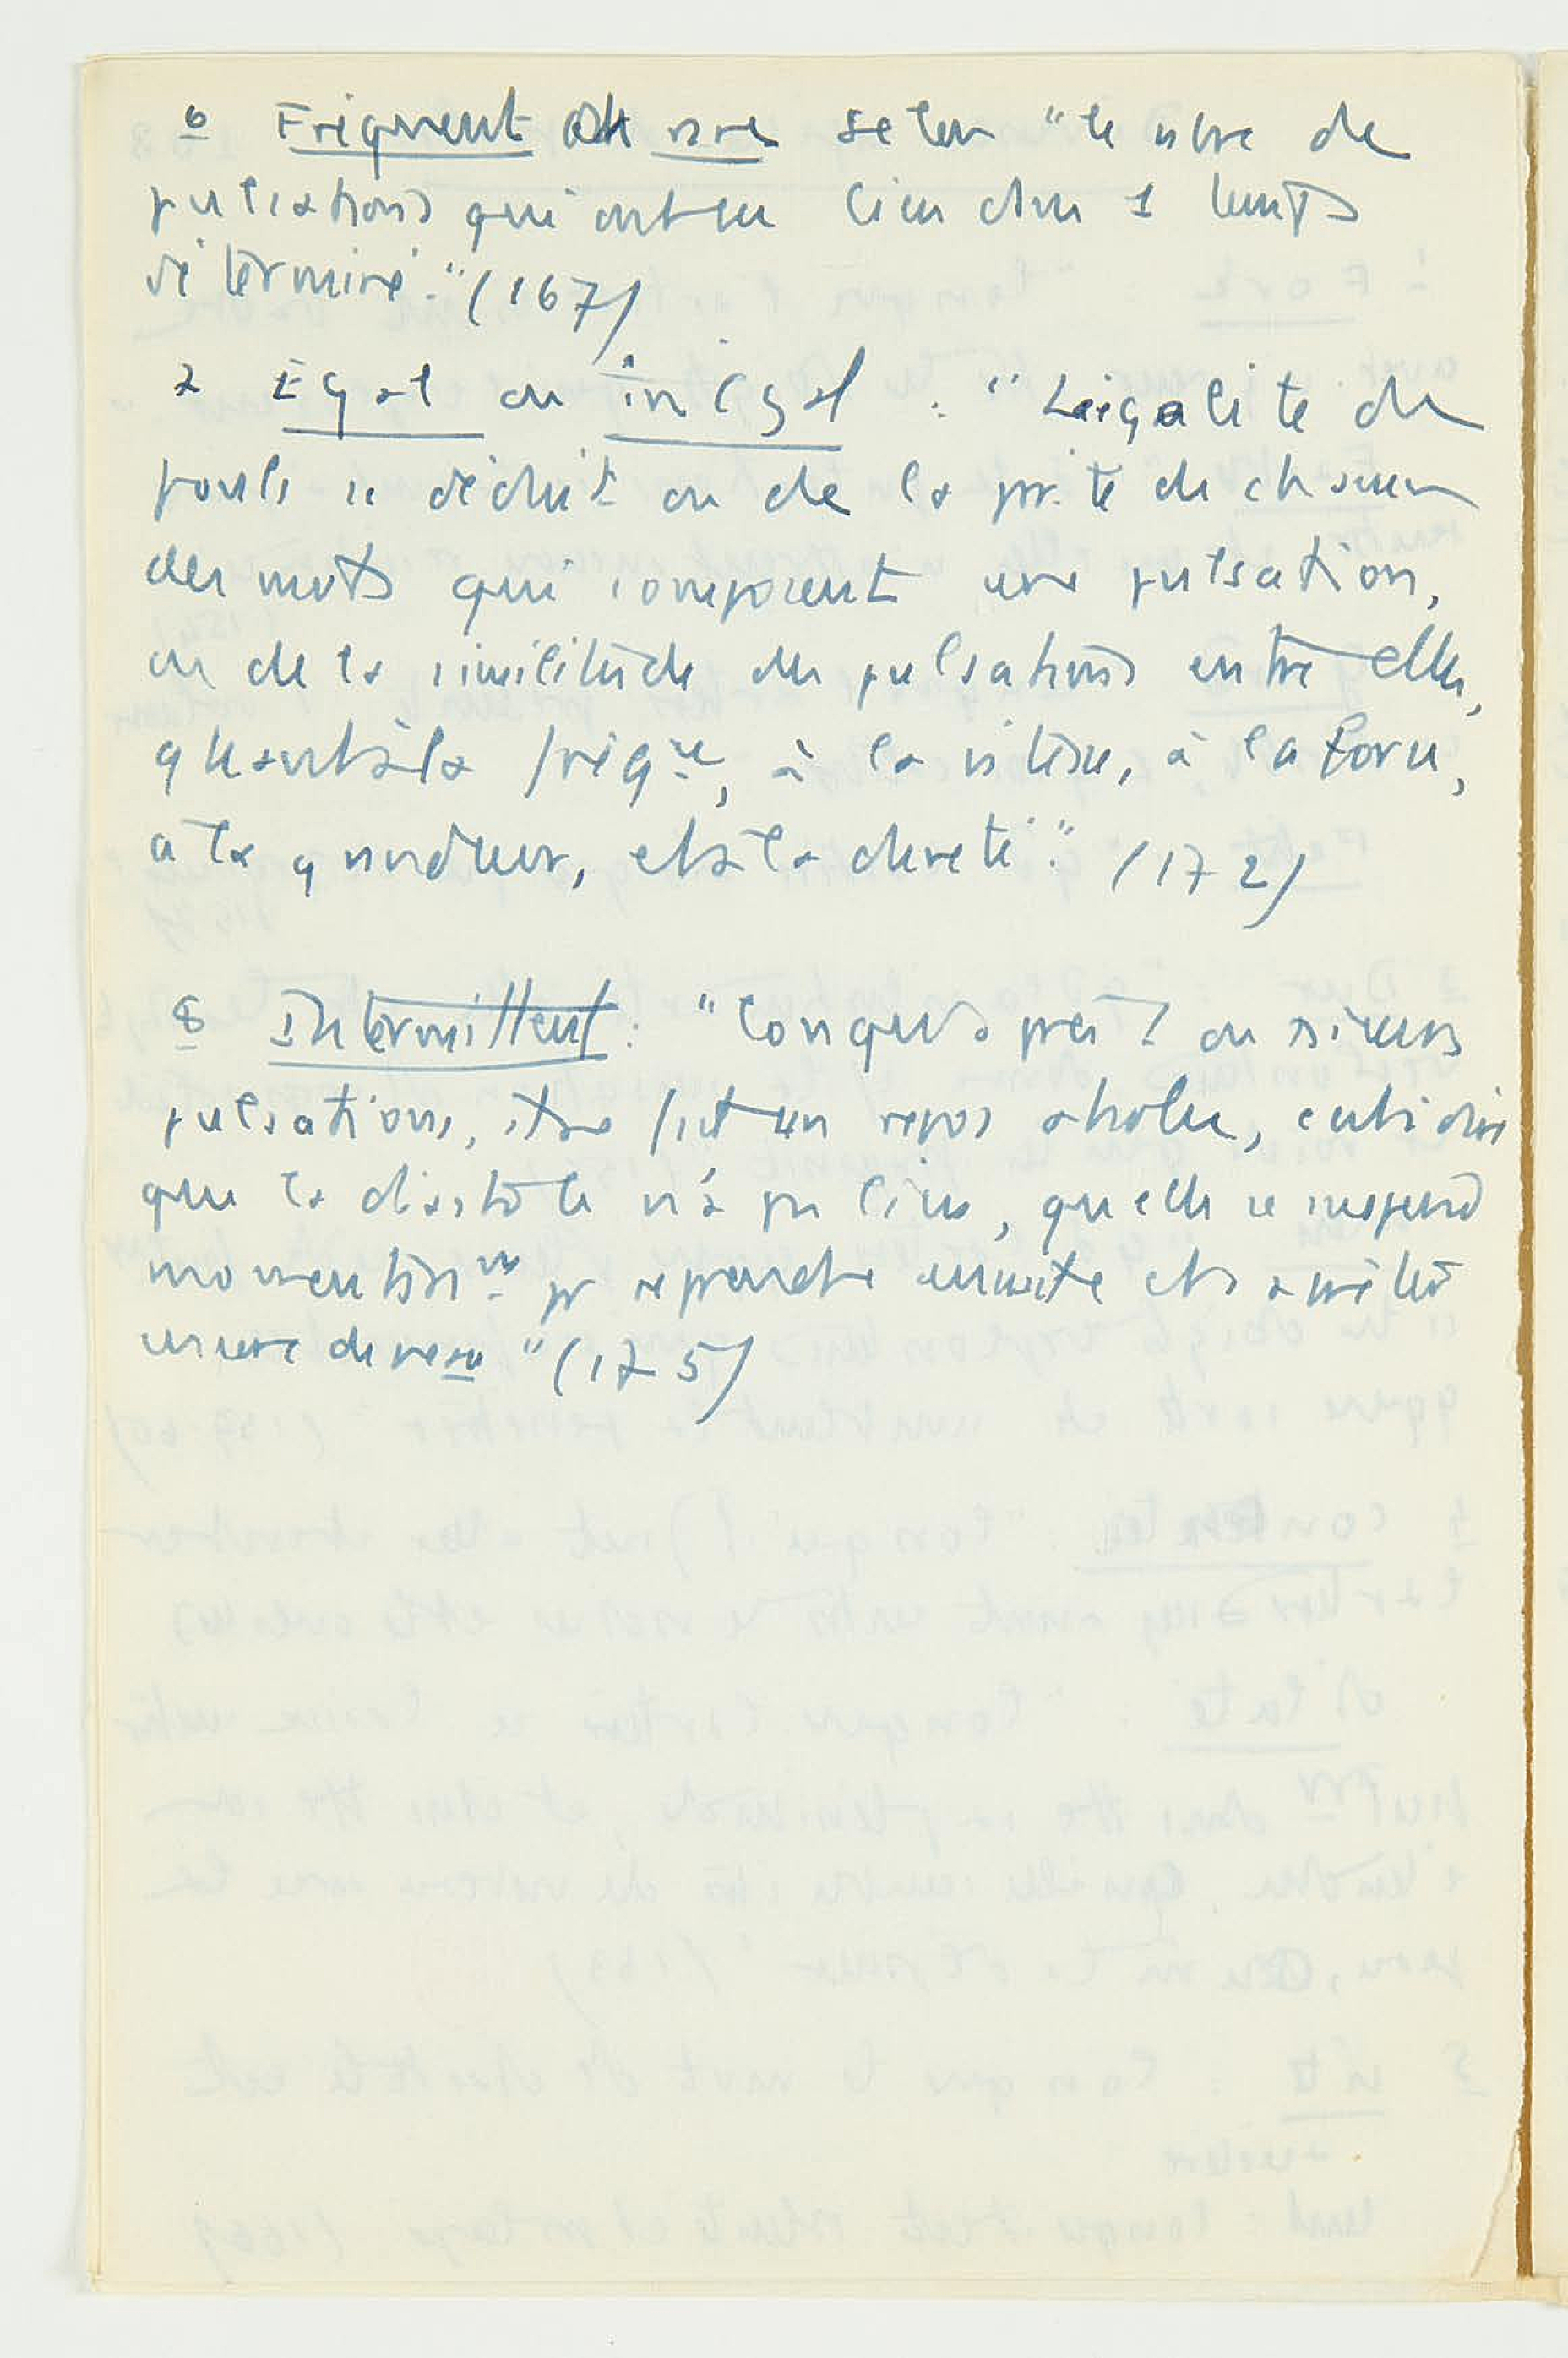 6 Fréquent ou rare selon "le nbre de
pulsations qui ont eu lieu dans 1 temps
déterminé." (167)
7 Egal ou inégal : "L'égalité du
pouls se déduit ou de la de chacun
des mvts qui composent une pulsation,
ou de la similitude des pulsations entre elles,
quant à la fréqce, à la vitesse, à la force,
à la grandeur, et à la dureté." (172)
8 Intermittent : "lorsqu'après 1 ou plusieurs
pulsations, il se fait un repos absolu, c'est-à-dire
que la diastole n'a pas lieu, qu'elle se suspend
momentanémt pr reprendre ensuite et s'arrêter
encore de nveau" (175)